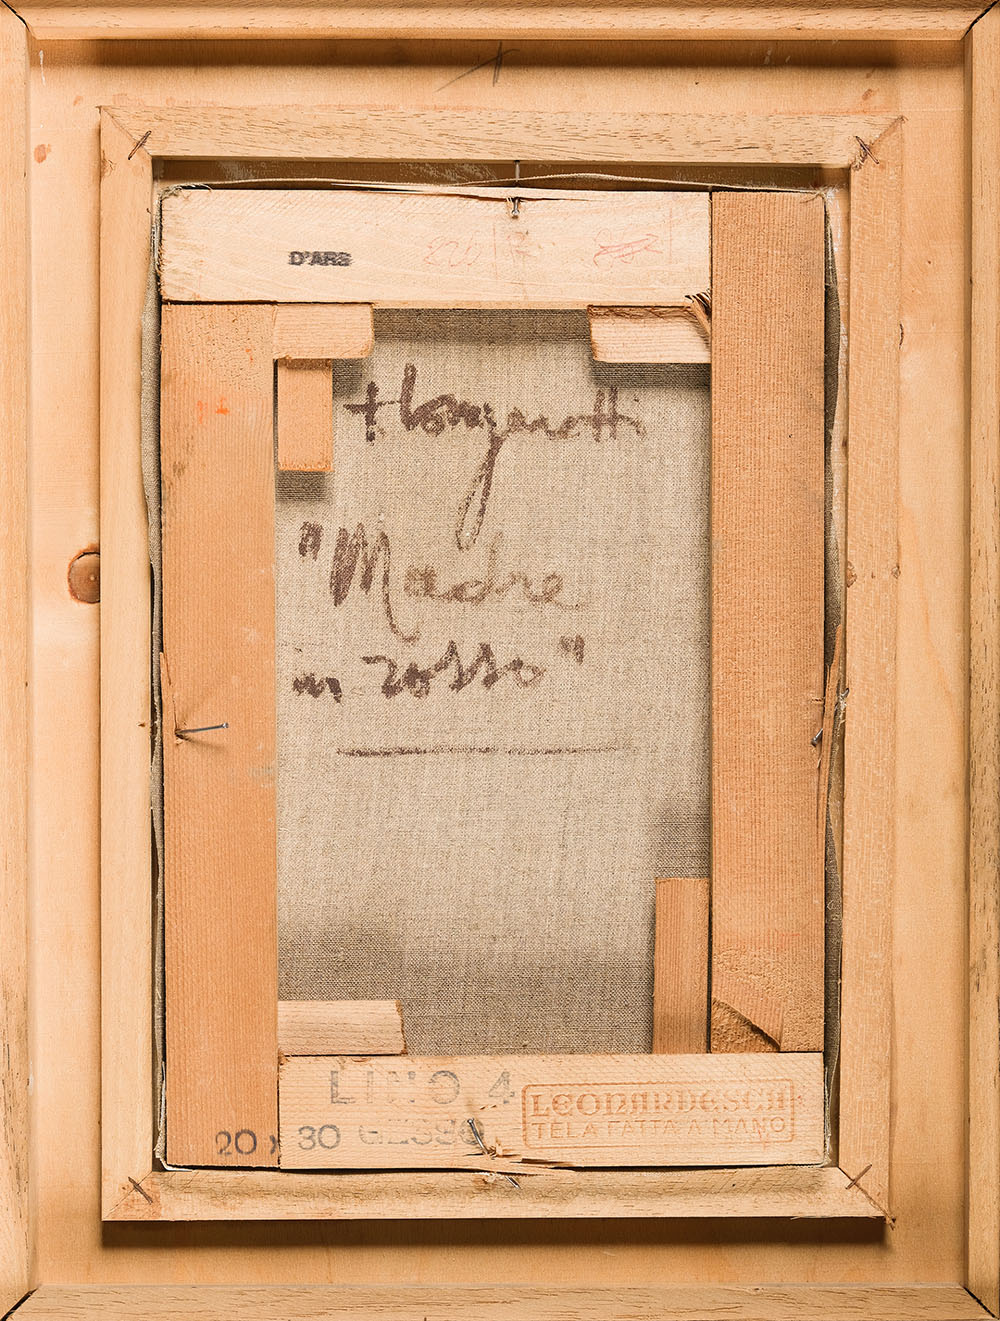 D'ARS
t longaretti
"Madre
in rosso"
LINO 4
LEONARDESCA
TELA FATTA A MANO
20 x 30 GESSO